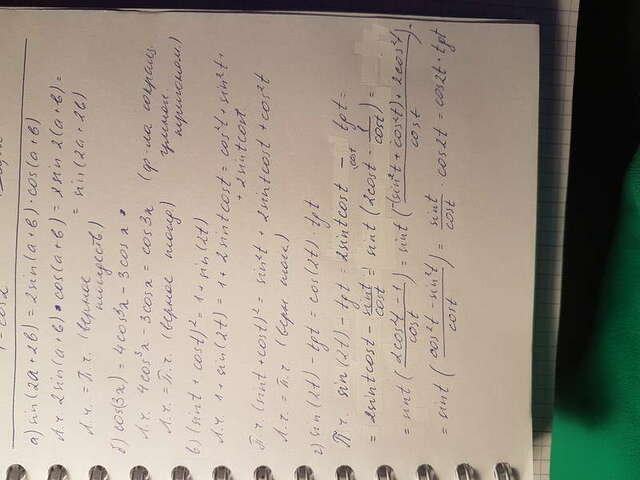 1 - cos α
а) sin(2a + 2b) = 2sin(a+b) · cos(a+b)
Л.ч. 2sin(a+b) · cos(a+b) = 2sin 2(a+b) =
= sin(2a+2b)
Л.ч. = П.ч. (верное тождеств.)
б) cos(3x) = 4cos³x - 3cos x
Л.ч. 4cos³x - 3cosx = cos3x (ф-ла сокращ. умнож. тригоном.)
Л.ч. = П.ч. (верное тожд)
в) (sint + cost)² = 1 + sin(2t)
Л.ч. 1 + sin(2t) = 1 + 2sintcost = cos²t + sin²t +
+ 2sintcost
П.ч. (sint + cost)² = sin²t + 2sintcost + cos²t
Л.ч. = П.ч. (верн. тожд)
г) sin(2t) - tgt = cos(2t) · tgt
П.ч. sin(2t) - tgt = 2sintcost - tgt =
= 2sintcost - sint/cost = sint (2cost - 1/cost) =
= sint (2cos²t - 1/cost) = sint (-(sin²t + cos²t) + 2cos²t/cost) =
= sint (cos²t - sin²t/cost) = sint/cost · cos2t = cos2t · tgt